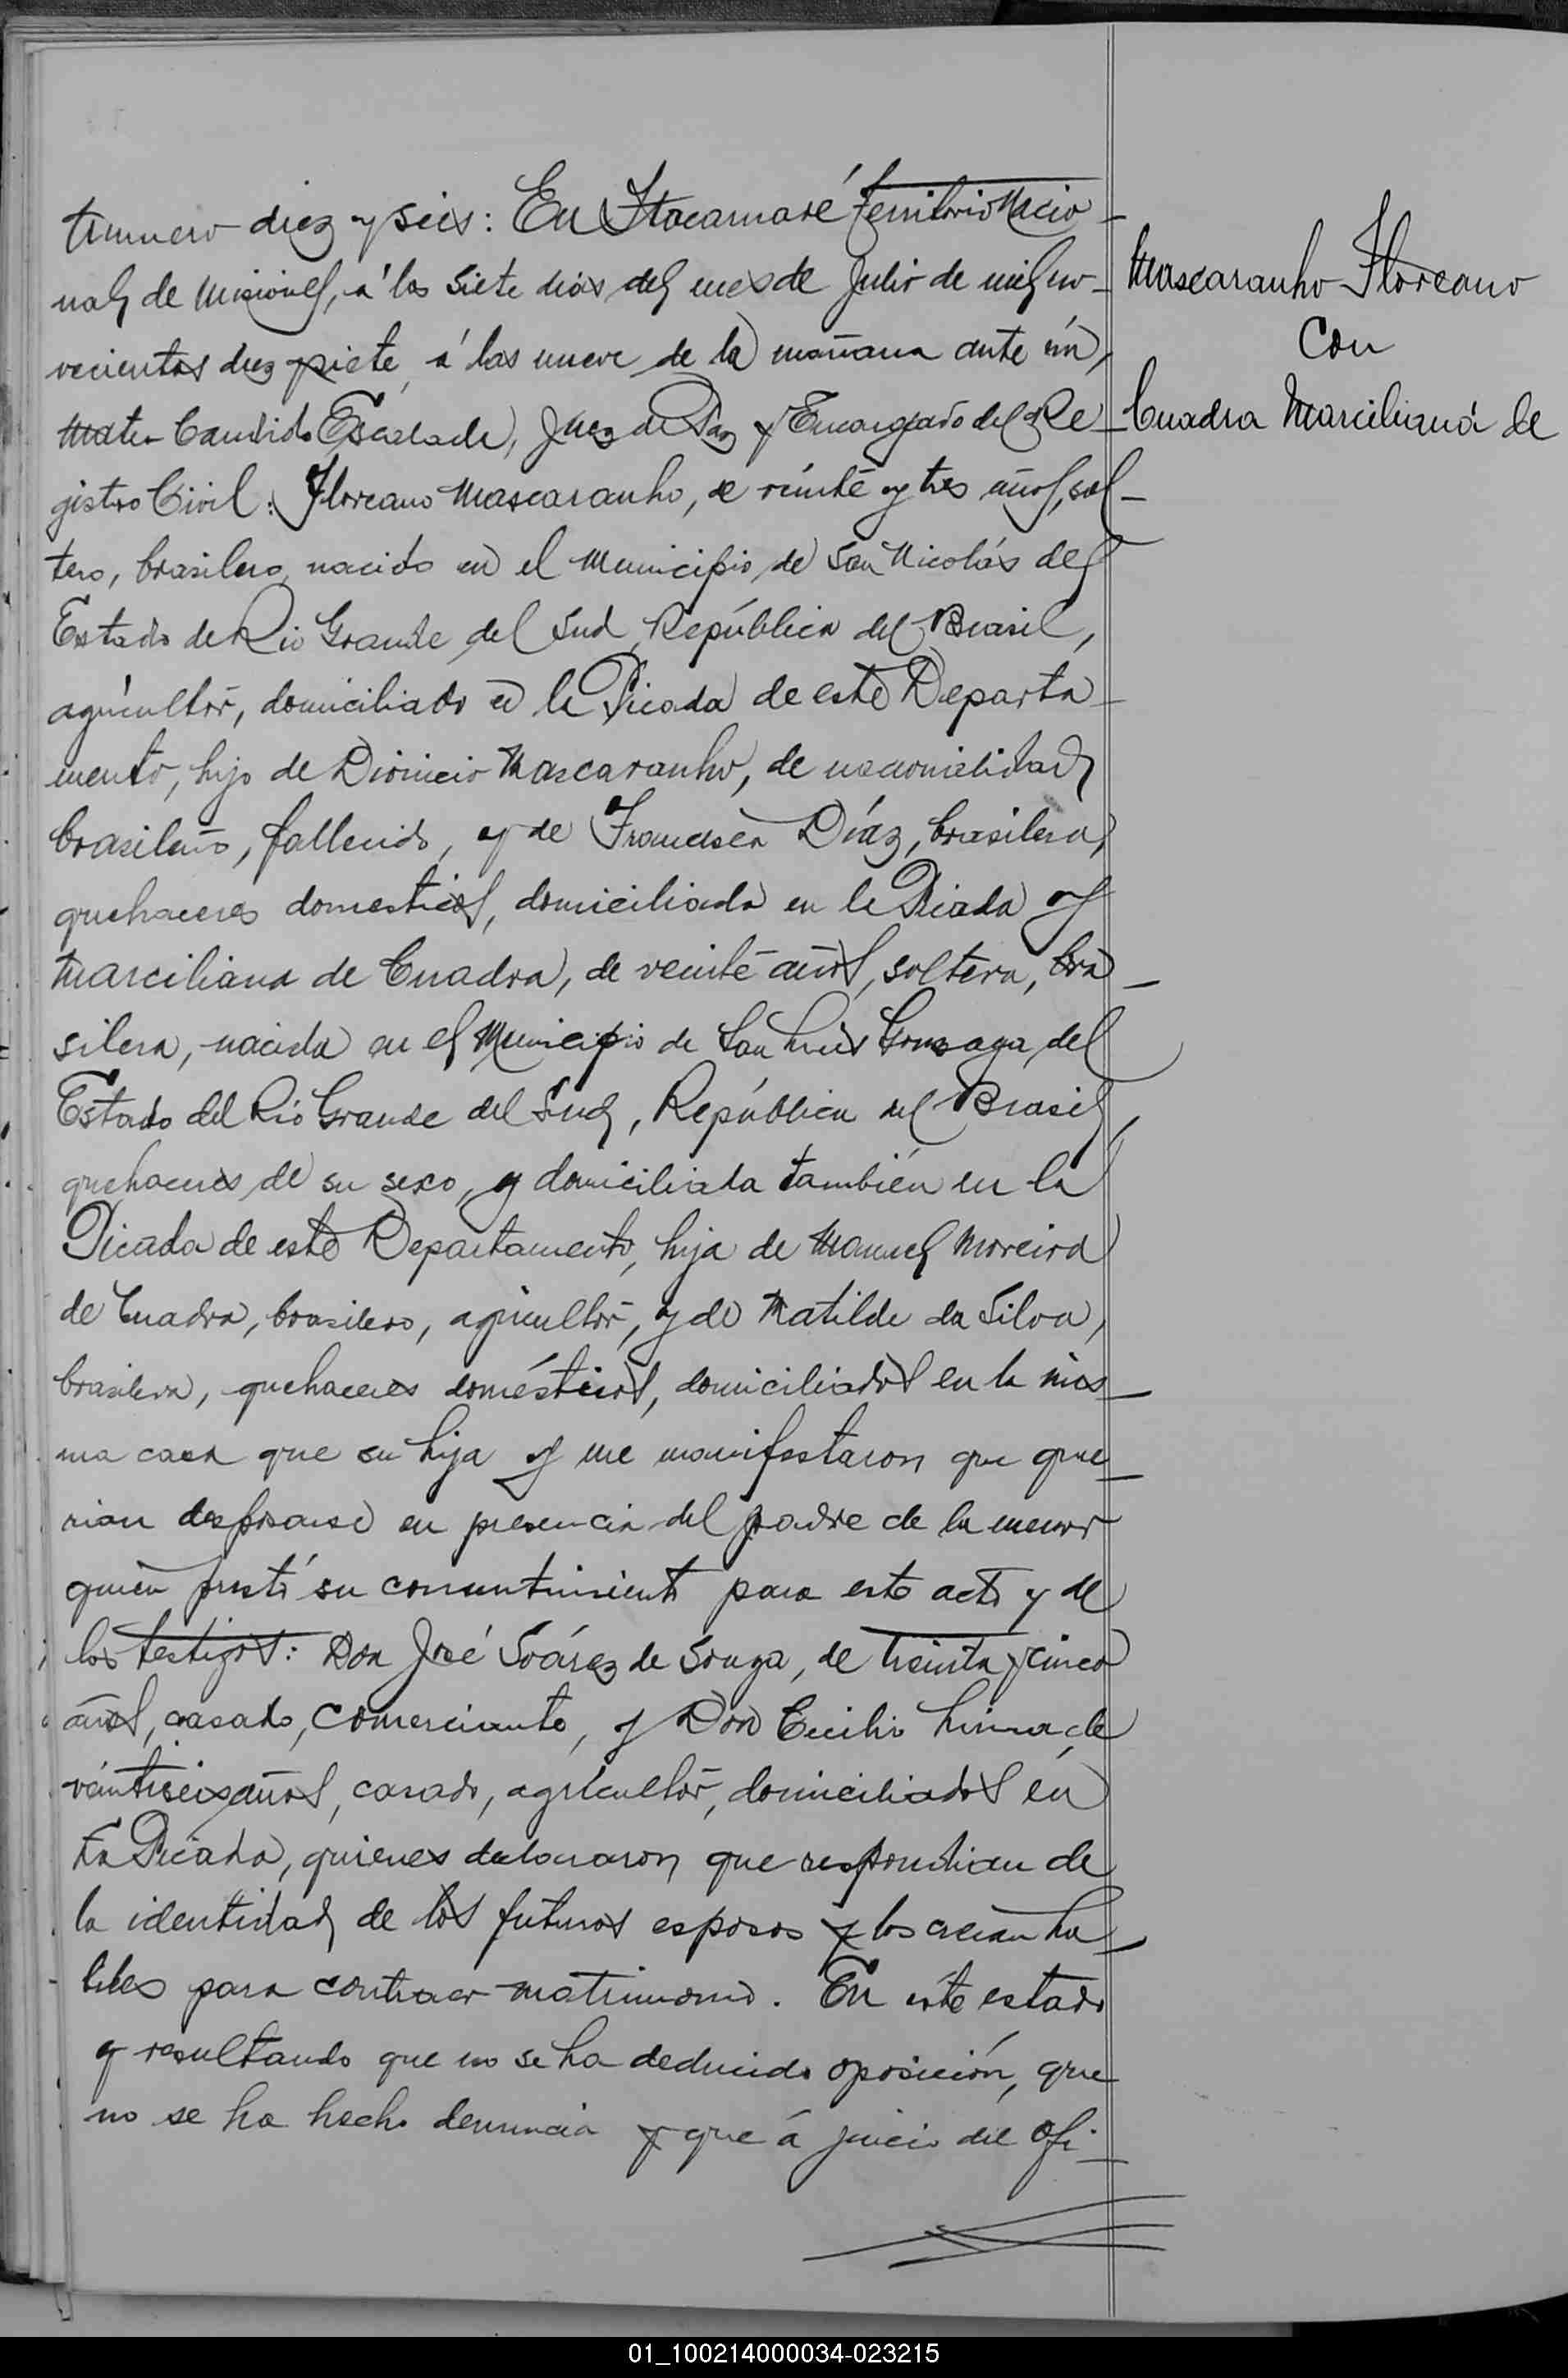 Número diez y seis: En Itacaruaré Territorio Nacio-
nal de Misiones, á los siete días del mes de Julio de mil no-
vecientos diez y siete, á las nueve de la mañana ante mí,
Cándido Escalada, Juez de Paz y Encargado del Re-
gistro Civil: Floreano Mascaranho, de veinte y tres años, sol-
tero, brasilero, nacido en el Municipio de San Nicolás del
Estado de Rio Grande del Sud, República del Brasil,
agricultor, domiciliado en la Picada de este Departa-
mento, hijo de Dionicio Mascaranho, de nacionalidad
brasileño, fallecido, y de Francisca Díaz, brasilera,
quehaceres domesticos, domiciliada en la Picada y
Marciliana de Cuadra, de veinte años, soltera, bra-
silera, nacida en el Municipio de San Luis Gonzaga, del
Estado del Rio Grande del Sud, República del Brasil,
quehaceres de su sexo, y domiciliada también en la
Picada de este Departamento, hija de Manuel Moreira
de Cuadra, brasilero, agricultor, y de Matilde da Silva,
brasilera, quehaceres domésticos, domiciliados en la mis-
ma casa que su hija y me manifestaron que que-
rian desposarse en presencia del padre de la menor
quien prestó su consentimiento para este acto y de
los testigos: Don José Soárez de Souza, de treinta y cinco
años, casado, comerciante, y Don Emilio Lima, de
veintiseis años, casado, agricultor, domiciliados en
La Picada, quienes declararon que respondian de
la identidad de los futuros esposos y los creian ha-
biles para contraer matrimonio. En este estado
y resultando que no se ha deducido oposición, que
no se ha hecho denuncia y que á juicio del Ofi-
Mascaranho Floreano
Con
Cuadra Marciliana de
01_100214000034-023215